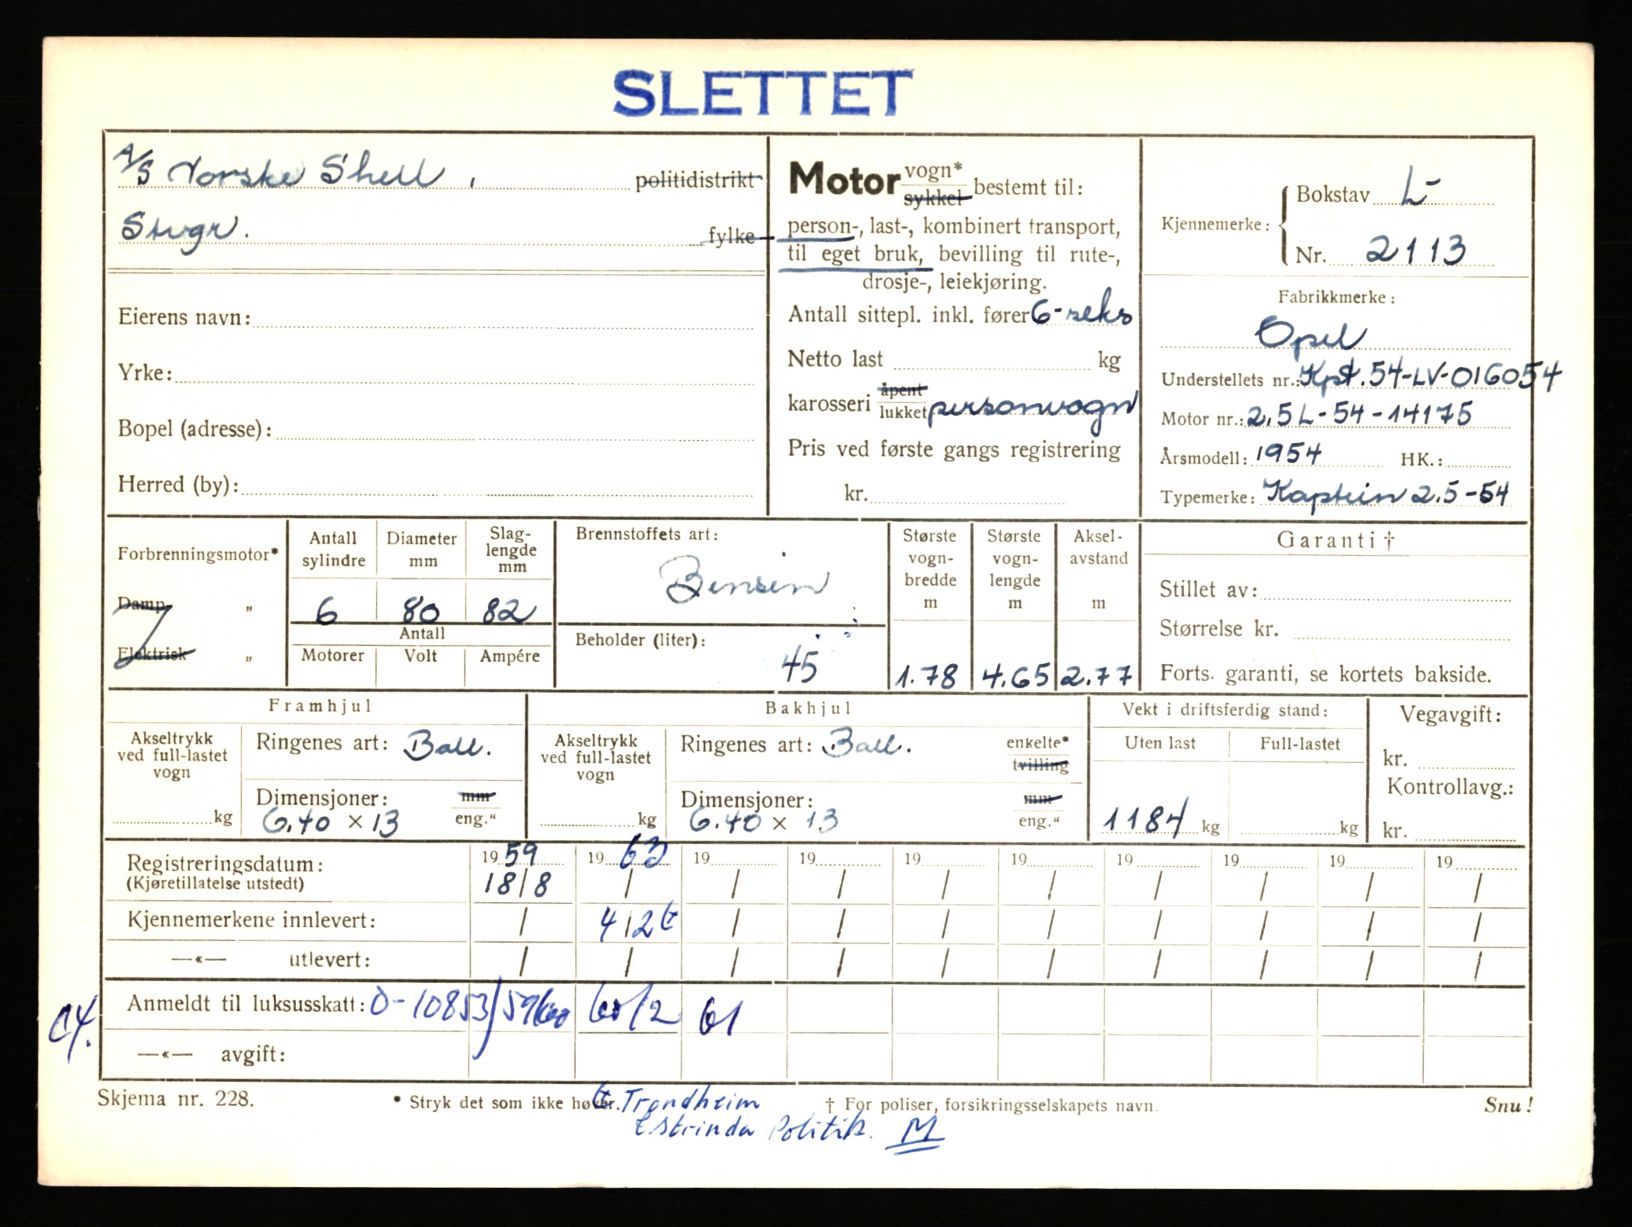 SLETTET
A/S Norske Shell, politidistrikt
Stvgr. fylke
Eierens navn:
Yrke:
Bopel (adresse):
Herred (by):
Motor vogn* sykkel bestemt til:
person-, last-, kombinert transport,
til eget bruk, bevilling til rute-,
drosje-, leiekjøring.
Antall sittepl. inkl. fører 6-seks
Netto last kg
karosseri åpent lukket personvogn
Pris ved første gangs registrering
kr.
Kjennemerke: { Bokstav L-
Nr. 2113
Fabrikkmerke:
Opel
Understellets nr.: Kpt. 54-LV-016054
Motor nr.: 2,5L-54-14175
Årsmodell: 1954 HK.:
Typemerke: Kaptein 2.5-54
Forbrenningsmotor*
Damp "
Elektrisk "
Antall sylindre
6
Diameter mm
80
Slag-lengde mm
82
Antall
Motorer Volt Ampére
Brennstoffets art:
Bensin
Beholder (liter):
45
Største vogn-bredde m
1.78
Største vogn-lengde m
4.65
Aksel-avstand m
2.77
Garanti †
Stillet av:
Størrelse kr.
Forts. garanti, se kortets bakside.
Framhjul
Akseltrykk ved full-lastet vogn
kg
Ringenes art: Ball.
Dimensjoner: mm
6.40 × 13 eng."
Bakhjul
Akseltrykk ved full-lastet vogn
kg
Ringenes art: Ball. enkelte*
tvilling
Dimensjoner: mm
6.40 × 13 eng."
Vekt i driftsferdig stand:
Uten last Full-lastet
1184 kg kg
Vegavgift:
kr.
Kontrollavg.:
kr.
Registreringsdatum: 1959 1963 19 19 19 19 19 19 19 19
(Kjøretillatelse utstedt) 18/8 / / / / / / / / /
Kjennemerkene innlevert: / 4/2 t / / / / / / / /
—«— utlevert: / / / / / / / / / /
Anmeldt til luksusskatt: O-10853/59/60 60/2 61
—«— avgift:
Skjema nr. 228.
* Stryk det som ikke høver.
† For poliser, forsikringsselskapets navn.
Snu!
t. Trondheim
Strinda Politik. M